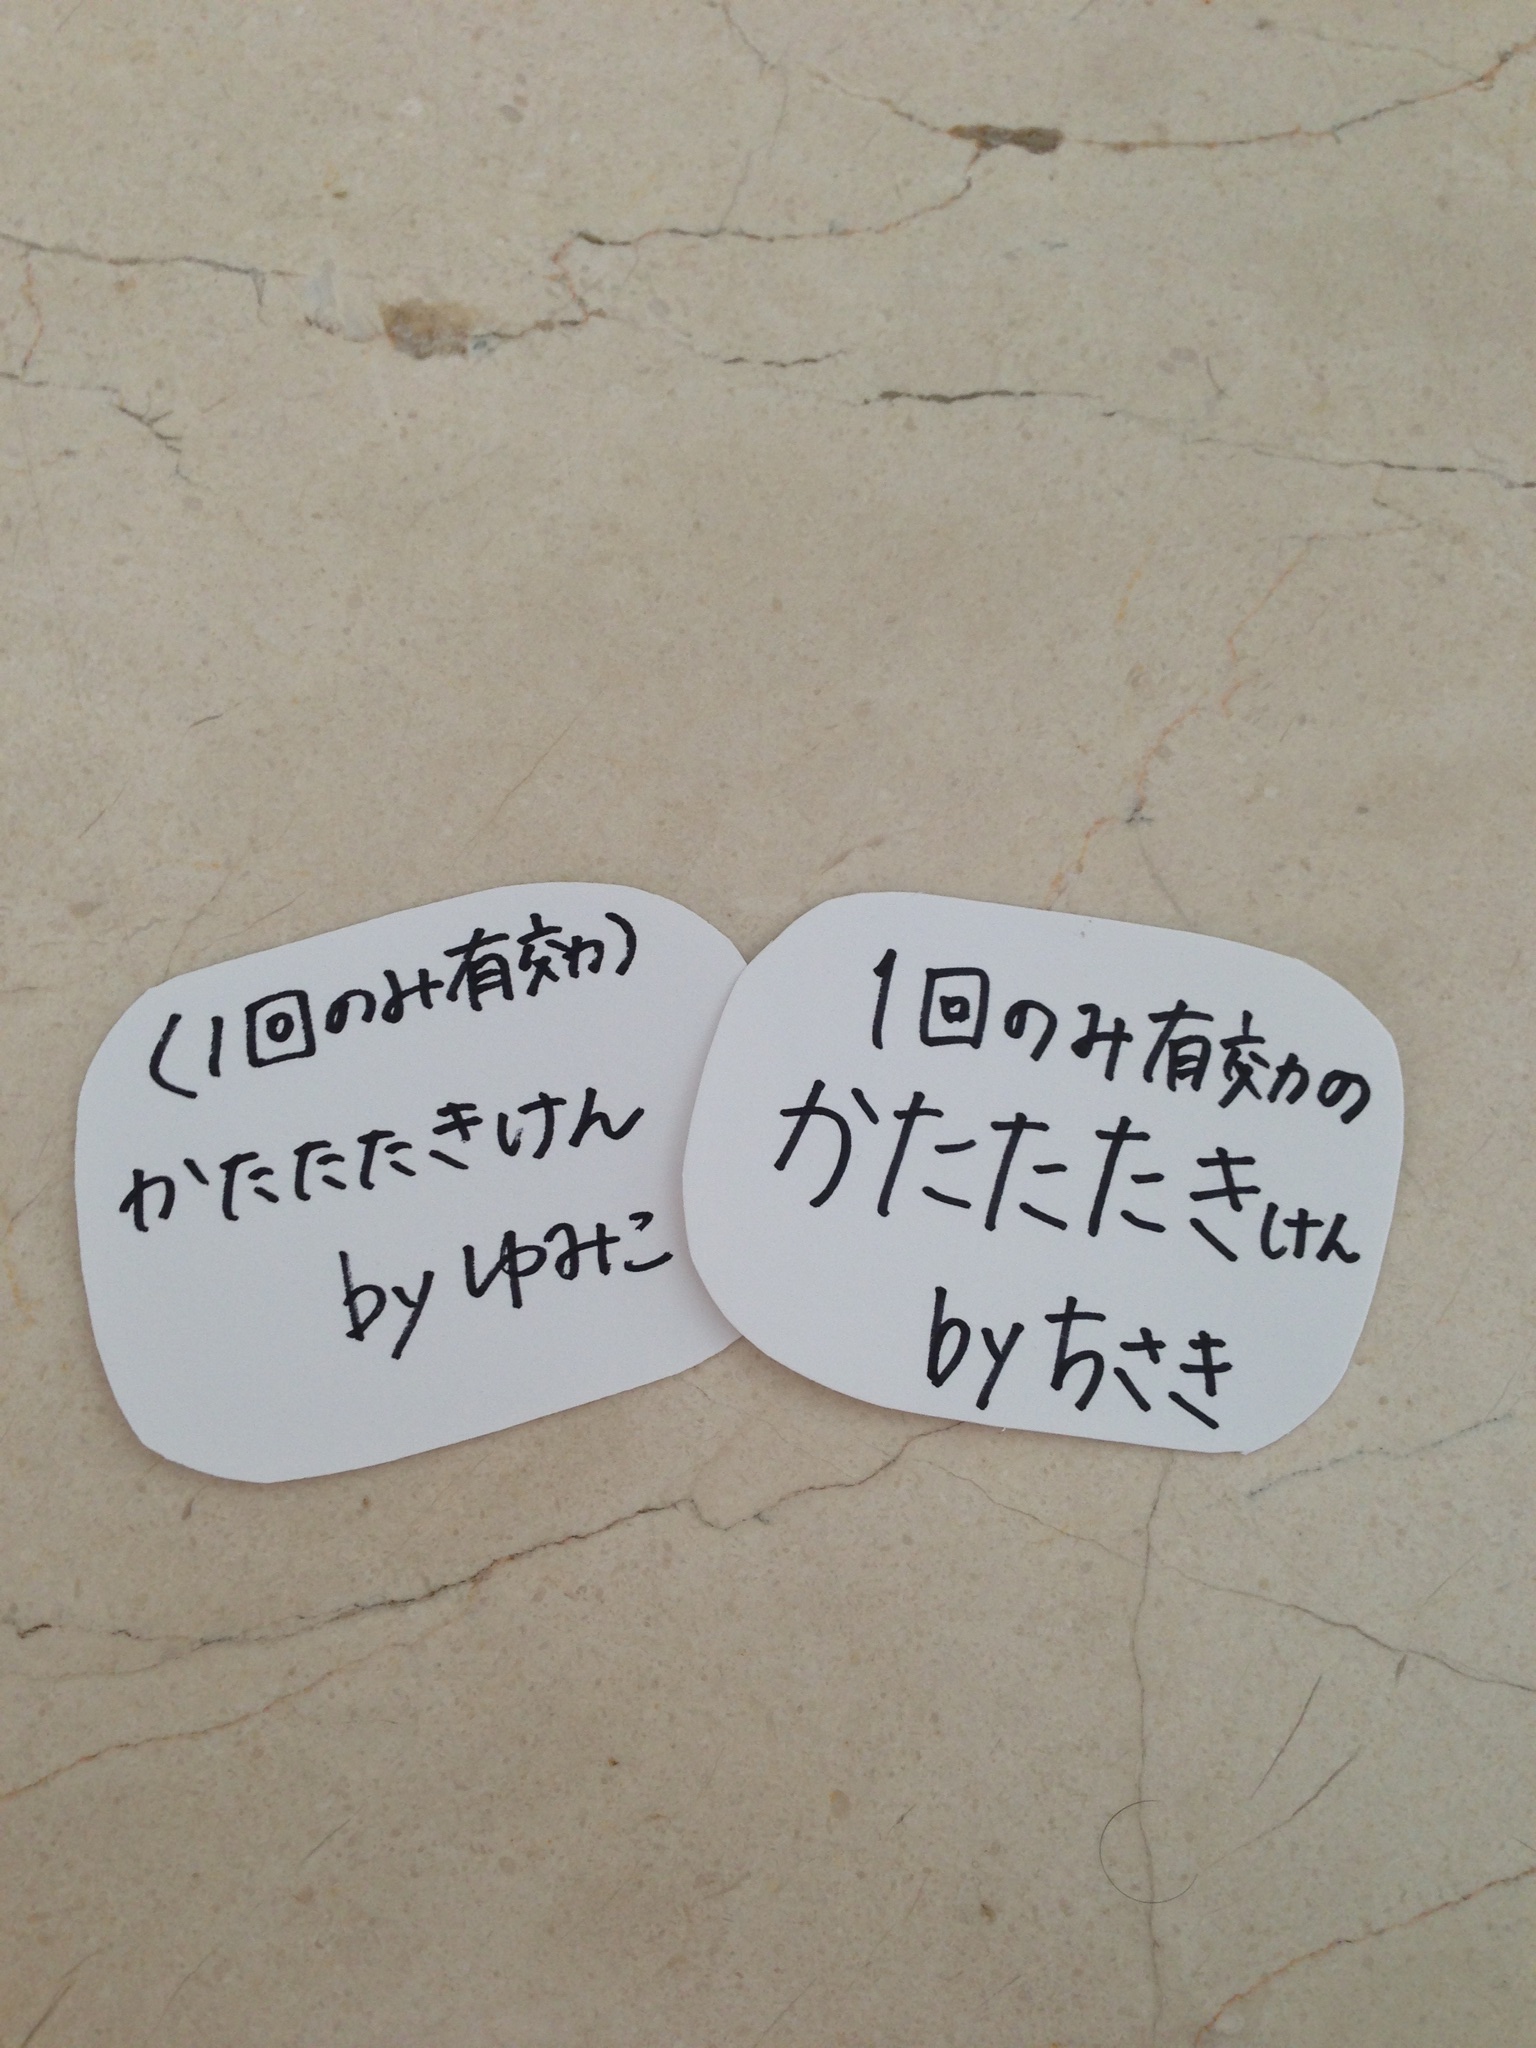 (1回のみ有効)
かたたたきけん
by ゆみこ
1回のみ有効の
かたたたきけん
by ちさき